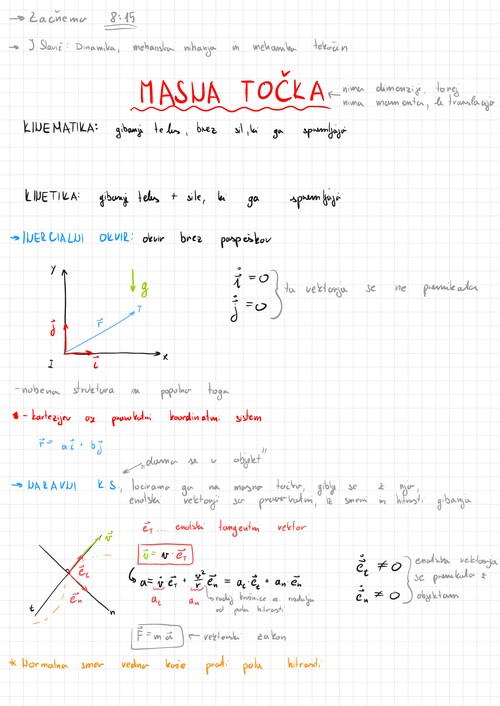 → Začnemo 8:15
→ J Slavič: Dinamika, mehanska nihanja in mehanika tekočin
MASNA TOČKA ← nima dimenzije, torej
nima momenta, le translacijo
KINEMATIKA: gibanje teles, brez sil, ki ga spremljajo
KINETIKA: gibanje teles + sile, ki ga spremljajo
→ INERCIALNI OKVIR: okvir brez pospeškov
y
g
T
r⃗
j⃗
I
i⃗
x
i⃗̇ = 0
j⃗̇ = 0
ta vektorja se ne premikata
- nobena struktura ni popolno toga
- kartezijev oz pravokotni koordinatni sistem
r⃗ = a i⃗ + b j⃗
"dama se v objekt"
→ NARAVNI K.S, lociramo ga na masno točko, giblje se z njo,
enotski vektorji so pravokotni, iz smeri in hitrosti gibanja
e⃗T .... enotski tangentni vektor
v⃗ = v · e⃗T
v⃗
e⃗t
e⃗n
t
n
a = v̇ e⃗T + v²/r e⃗n = at · e⃗t + an · e⃗n
at
an
radij krožnice
od hitrosti
e⃗̇t ≠ 0
e⃗̇n ≠ 0
enotska vektorja
se premikata z
objektom
F⃗ = m a⃗ ← vektorski zakon
* Normalna smer vedno kaže proti polu hitrosti